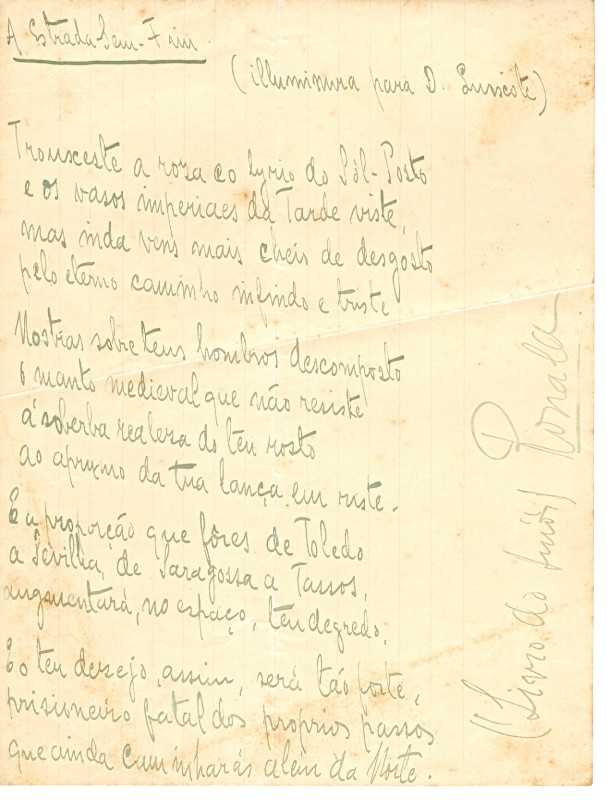 A Estrada-Sem-Fim
(illuminura para D. Quixote)
Trouxeste a roza e o lyrio do Sól-Posto
e os vasos imperiaes da Tarde viste,
mas inda vens mais cheio de desgôsto
pelo eterno caminho infindo e triste
Mostras sobre teus hombros descomposto
o manto medieval que não resiste
á soberba realeza do teu rosto
ao aprumo da tua lança em riste.
E a proporção que fôres de Toledo
a Sevilha, de Saragossa a
augmentará, no espaço, teu degredo,
E o teu desejo, assim, será tão forte,
prisioneiro fatal dos proprios passos
que ainda caminharás alem da Morte.
(Livro do) Ronald